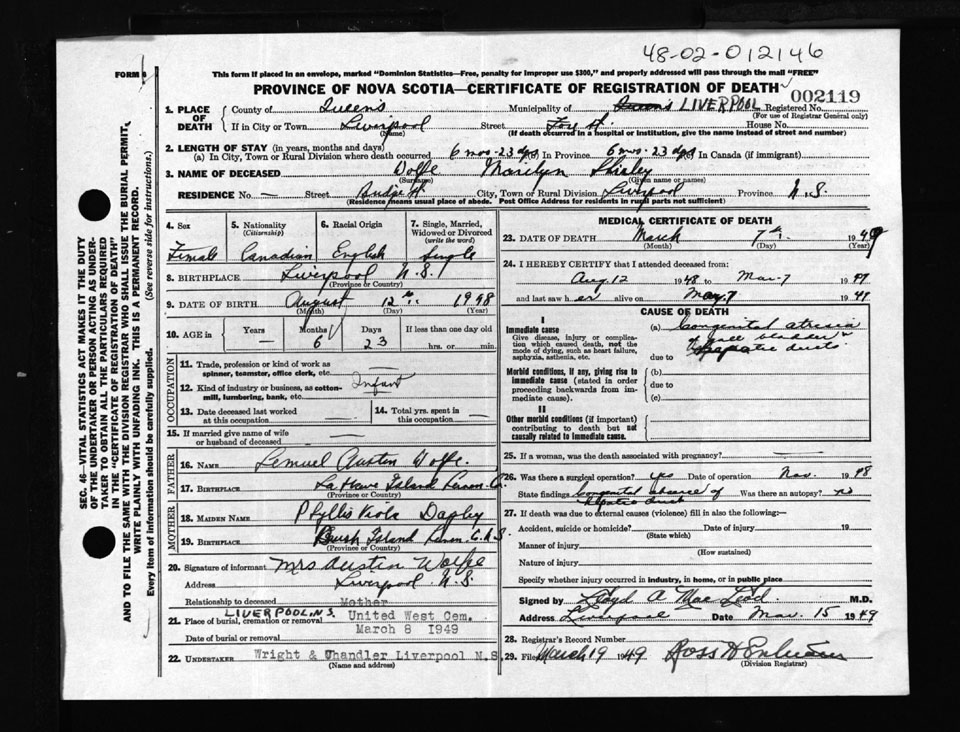 48-02-012146
FORM 6
This form if placed in an envelope, marked "Dominion Statistics—Free, penalty for improper use $300," and properly addressed will pass through the mail "FREE"
PROVINCE OF NOVA SCOTIA—CERTIFICATE OF REGISTRATION OF DEATH
002119
1. PLACE OF DEATH
County of Queens Municipality of Queens LIVERPOOL Registered No.
(For use of Registrar General only)
If in City or Town Liverpool Street House No.
(Name) (If death occurred in a hospital or institution, give the name instead of street and number)
2. LENGTH OF STAY (in years, months and days)
(a) In City, Town or Rural Division where death occurred 6 mos-23 dys (b) In Province 6 mos-23 dys (c) In Canada (if immigrant)
3. NAME OF DECEASED Wolfe Marilyn Shirley
(Surname) (Given name or names)
RESIDENCE No. — Street City, Town or Rural Division Liverpool Province N.S.
(Residence means usual place of abode. Post Office Address for residents in rural parts not sufficient)
4. Sex
Female
5. Nationality
(Citizenship)
Canadian
6. Racial Origin
English
7. Single, Married, Widowed or Divorced
(write the word)
Single
8. BIRTHPLACE Liverpool N.S.
(Province or Country)
9. DATE OF BIRTH August 12th 1948
(Month) (Day) (Year)
10. AGE in
Years Months Days If less than one day old
— 6 23 hrs. or min.
OCCUPATION
11. Trade, profession or kind of work as spinner, teamster, office clerk, etc. —
12. Kind of industry or business, as cotton-mill, lumbering, bank, etc. Infant
13. Date deceased last worked at this occupation —
14. Total yrs. spent in this occupation —
15. If married give name of wife or husband of deceased —
FATHER
16. NAME Lemuel Austin Wolfe
17. BIRTHPLACE LaHave Island Lunen. Co.
(Province or Country)
MOTHER
18. MAIDEN NAME Phyllis Viola
19. BIRTHPLACE Bush Island Lunen. C. N.S
(Province or Country)
20. Signature of informant Mrs Austin Wolfe
Address Liverpool N.S.
Relationship to deceased Mother
LIVERPOOL, N.S.
21. Place of burial, cremation or removal United West Cem.
Date of burial or removal March 8 1949
22. UNDERTAKER Wright & Chandler Liverpool N.S.
(Name and address)
MEDICAL CERTIFICATE OF DEATH
23. DATE OF DEATH March 7th 1949
(Month) (Day) (Year)
24. I HEREBY CERTIFY that I attended deceased from:
Aug 12 1948 to Mar-7 1949
and last saw her alive on Mar 7 1949
CAUSE OF DEATH
I
Immediate cause
Give disease, injury or complication which caused death, not the mode of dying, such as heart failure, asphyxia, asthenia, etc.
(a) Congenital atresia
of gall bladder
due to hepatic ducts
Morbid conditions, if any, giving rise to immediate cause (stated in order proceeding backwards from immediate cause).
(b)
due to
(c)
II
Other morbid conditions (if important) contributing to death but not causally related to immediate cause.
25. If a woman, was the death associated with pregnancy? —
26. Was there a surgical operation? yes Date of operation Nov. 1948
State findings Congenital absence of Was there an autopsy? no
hepatic duct
27. If death was due to external causes (violence) fill in also the following:—
Accident, suicide or homicide? Date of injury 19
(State which)
Manner of injury
(How sustained)
Nature of injury
Specify whether injury occurred in industry, in home, or in public place
Signed by Lloyd A MacLeod M.D.
Address Liverpool Date Mar. 15 1949
28. Registrar's Record Number
29. Filed March 19 1949 Ross
(Division Registrar)
SEC. 46—VITAL STATISTICS ACT MAKES IT THE DUTY
OF THE UNDERTAKER OR PERSON ACTING AS UNDER-
TAKER TO OBTAIN ALL THE PARTICULARS REQUIRED
IN THE "CERTIFICATE OF REGISTRATION OF DEATH"
AND TO FILE THE SAME WITH THE DIVISION REGISTRAR, WHO SHALL ISSUE THE BURIAL PERMIT.
WRITE PLAINLY WITH UNFADING INK. THIS IS A PERMANENT RECORD.
Every item of information should be carefully supplied. (See reverse side for instructions.)